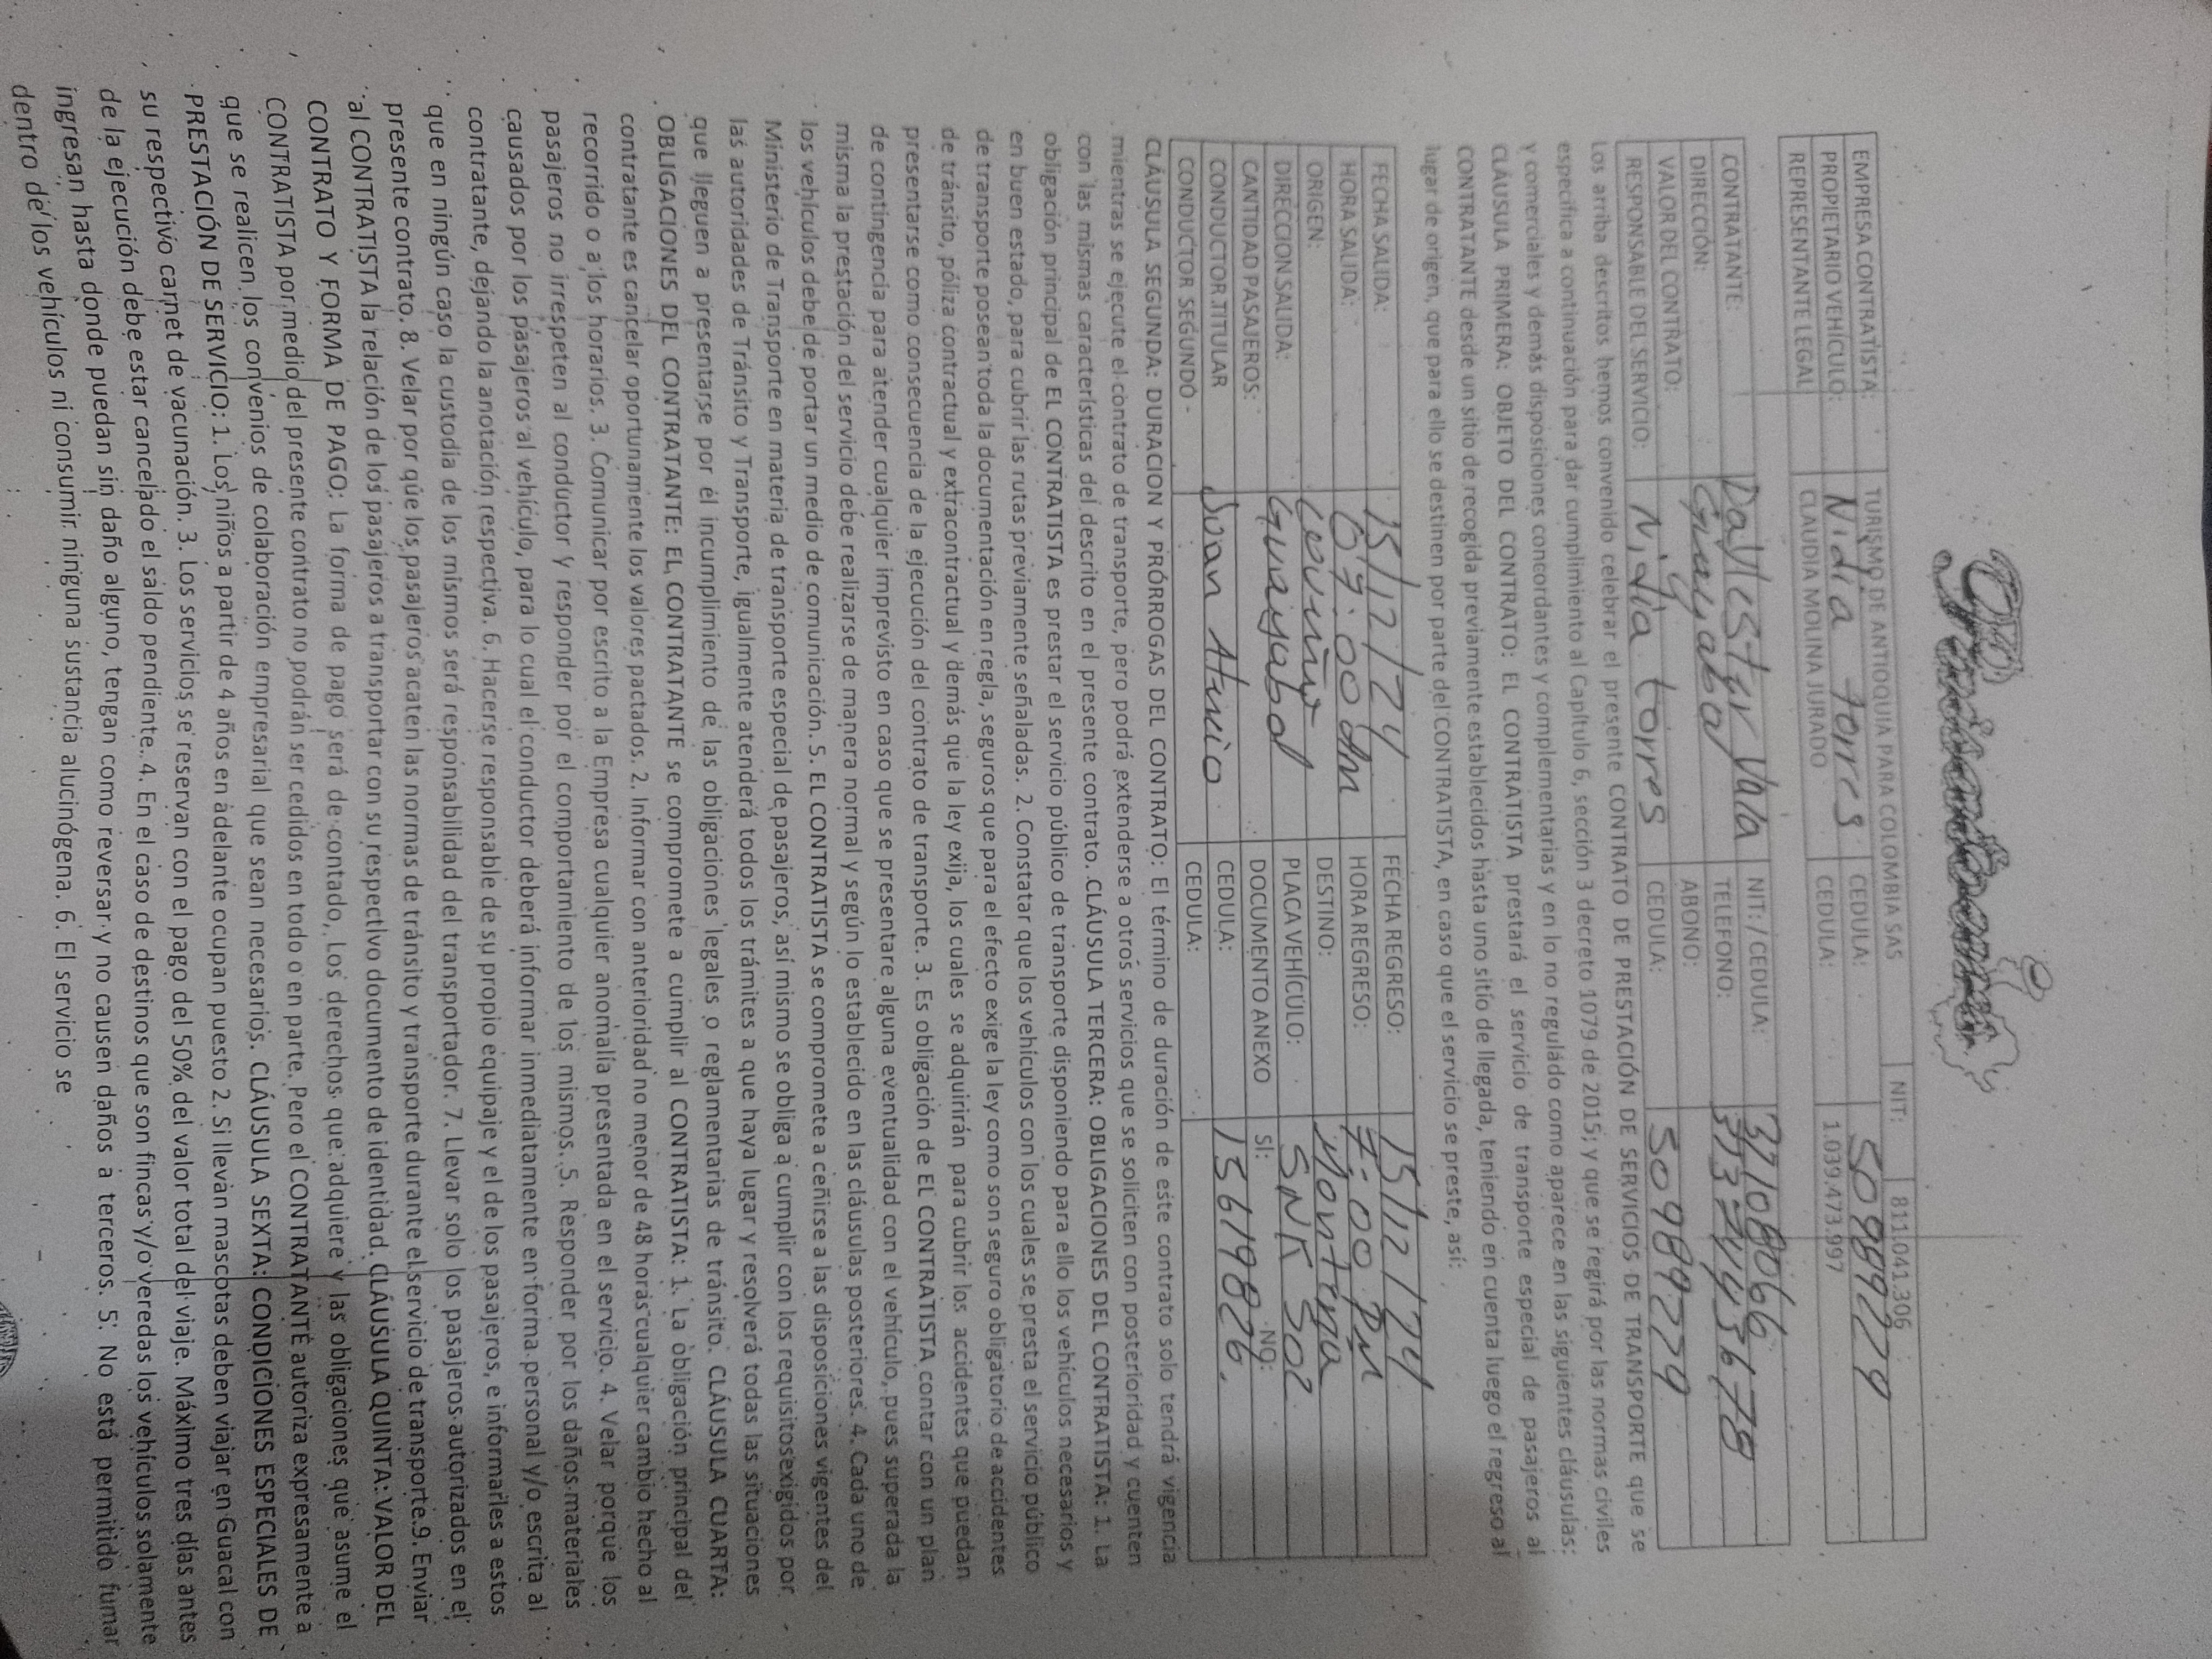 EMPRESA CONTRATISTA: TURISMO DE ANTIOQUIA PARA COLOMBIA SAS NIT: 811.041.306
PROPIETARIO VEHÍCULO: Nidia Torres CEDULA: 50989229
REPRESENTANTE LEGAL CLAUDIA MOLINA JURADO CEDULA: 1.039.473.997
CONTRATANTE: NIT: / CEDULA: 37108066
DIRECCIÓN: Guayabal TELEFONO:
VALOR DEL CONTRATO: ABONO:
RESPONSABLE DEL SERVICIO: Nidia torres CEDULA: 50989229
Los arriba descritos hemos convenido celebrar el presente CONTRATO DE PRESTACIÓN DE SERVICIOS DE TRANSPORTE que se
especifica a continuación para dar cumplimiento al Capítulo 6, sección 3 decreto 1079 de 2015; y que se regirá por las normas civiles
y comerciales y demás disposiciones concordantes y complementarias y en lo no regulado como aparece en las siguientes cláusulas:
CLÁUSULA PRIMERA: OBJETO DEL CONTRATO: EL CONTRATISTA prestará el servicio de transporte especial de pasajeros al
CONTRATANTE desde un sitio de recogida previamente establecidos hasta uno sitio de llegada, teniendo en cuenta luego el regreso al
lugar de origen, que para ello se destinen por parte del CONTRATISTA, en caso que el servicio se preste, así:
FECHA SALIDA: 15/12/24 FECHA REGRESO: 15/12/24
HORA SALIDA: 07:00 HORA REGRESO: 7:00 PM
ORIGEN: DESTINO:
DIRECCION SALIDA: Guayabal PLACA VEHÍCULO: SNK 502
CANTIDAD PASAJEROS: DOCUMENTO ANEXO SI: NO:
CONDUCTOR TITULAR CEDULA: 15619826
CONDUCTOR SEGUNDO CEDULA:
CLÁUSULA SEGUNDA: DURACION Y PRÓRROGAS DEL CONTRATO: El término de duración de este contrato solo tendrá vigencia
mientras se ejecute el contrato de transporte, pero podrá extenderse a otros servicios que se soliciten con posterioridad y cuenten
con las mismas características del descrito en el presente contrato. CLÁUSULA TERCERA: OBLIGACIONES DEL CONTRATISTA: 1. La
obligación principal de EL CONTRATISTA es prestar el servicio público de transporte disponiendo para ello los vehículos necesarios y
en buen estado, para cubrir las rutas previamente señaladas. 2. Constatar que los vehículos con los cuales se presta el servicio público
de transporte posean toda la documentación en regla, seguros que para el efecto exige la ley como son seguro obligatorio de accidentes
de tránsito, póliza contractual y extracontractual y demás que la ley exija, los cuales se adquirirán para cubrir los accidentes que puedan
presentarse como consecuencia de la ejecución del contrato de transporte. 3. Es obligación de EL CONTRATISTA contar con un plan
de contingencia para atender cualquier imprevisto en caso que se presentare alguna eventualidad con el vehículo, pues superada la
misma la prestación del servicio debe realizarse de manera normal y según lo establecido en las cláusulas posteriores. 4. Cada uno de
los vehículos debe de portar un medio de comunicación. 5. EL CONTRATISTA se compromete a ceñirse a las disposiciones vigentes del
Ministerio de Transporte en materia de transporte especial de pasajeros, así mismo se obliga a cumplir con los requisitosexigidos por
las autoridades de Tránsito y Transporte, igualmente atenderá todos los trámites a que haya lugar y resolverá todas las situaciones
que lleguen a presentarse por él incumplimiento de las obligaciones legales o reglamentarias de tránsito. CLÁUSULA CUARTA:
OBLIGACIONES DEL CONTRATANTE: EL CONTRATANTE se compromete a cumplir al CONTRATISTA: 1. La obligación principal del
contratante es cancelar oportunamente los valores pactados. 2. Informar con anterioridad no menor de 48 horas cualquier cambio hecho al
recorrido o a los horarios. 3. Comunicar por escrito a la Empresa cualquier anomalía presentada en el servicio. 4. Velar porque los
pasajeros no irrespeten al conductor y responder por el comportamiento de los mismos. 5. Responder por los daños materiales
causados por los pasajeros al vehículo, para lo cual el conductor deberá informar inmediatamente en forma personal y/o escrita al
contratante, dejando la anotación respectiva. 6. Hacerse responsable de su propio equipaje y el de los pasajeros, e informarles a estos
que en ningún caso la custodia de los mismos será responsabilidad del transportador. 7. Llevar solo los pasajeros autorizados en el
presente contrato. 8. Velar por qúe los pasajeros acaten las normas de tránsito y transporte durante el servicio de transporte.9. Enviar
al CONTRATISTA la relación de los pasajeros a transportar con su respectivo documento de identidad. CLÁUSULA QUINTA: VALOR DEL
CONTRATO Y FORMA DE PAGO: La forma de pago será de contado. Los derechos que adquiere y las obligaciones que asume el
CONTRATISTA por medio del presente contrato no podrán ser cedidos en todo o en parte. Pero el CONTRATANTE autoriza expresamente a
que se realicen los convenios de colaboración empresarial que sean necesarios. CLÁUSULA SEXTA: CONDICIONES ESPECIALES DE
PRESTACIÓN DE SERVICIO: 1. Los niños a partir de 4 años en adelante ocupan puesto 2. Si llevan mascotas deben viajar en Guacal con
su respectivo carnet de vacunación. 3. Los servicios se reservan con el pago del 50% del valor total del viaje. Máximo tres días antes
de la ejecución debe estar cancelado el saldo pendiente. 4. En el caso de destinos que son fincas y/o veredas los vehículos solamente
ingresan hasta donde puedan sin daño alguno, tengan como reversar y no causen daños a terceros. 5. No está permitido fumar
dentro de los vehículos ni consumir ninguna sustancia alucinógena. 6. El servicio se